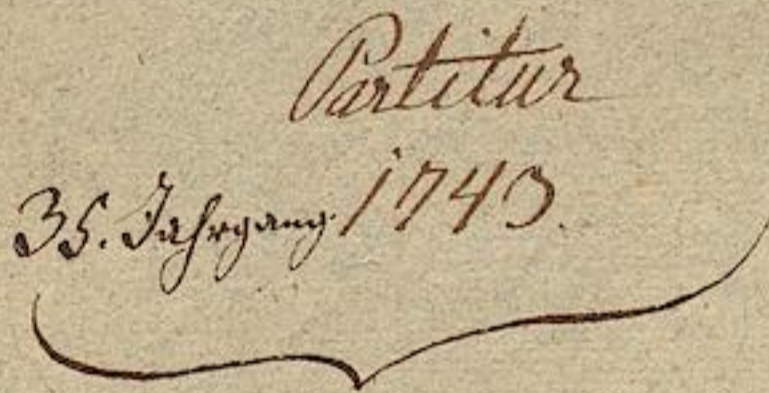 Partitur
35. Jahrgang. 1743.